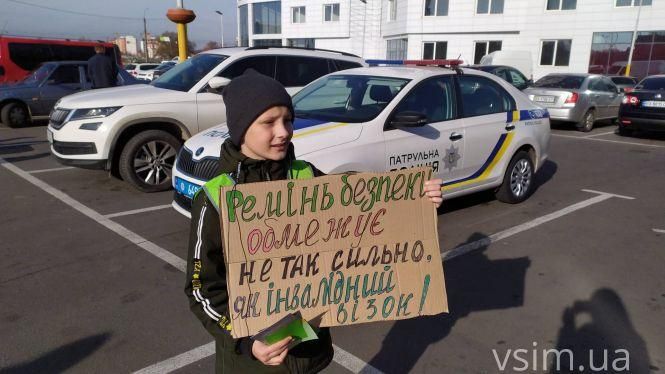 ПАТРУЛЬНА
ПОЛІЦІЯ
Ремінь безпеки
обмежує
не так сильно,
як інвалідний
візок!
vsim.ua